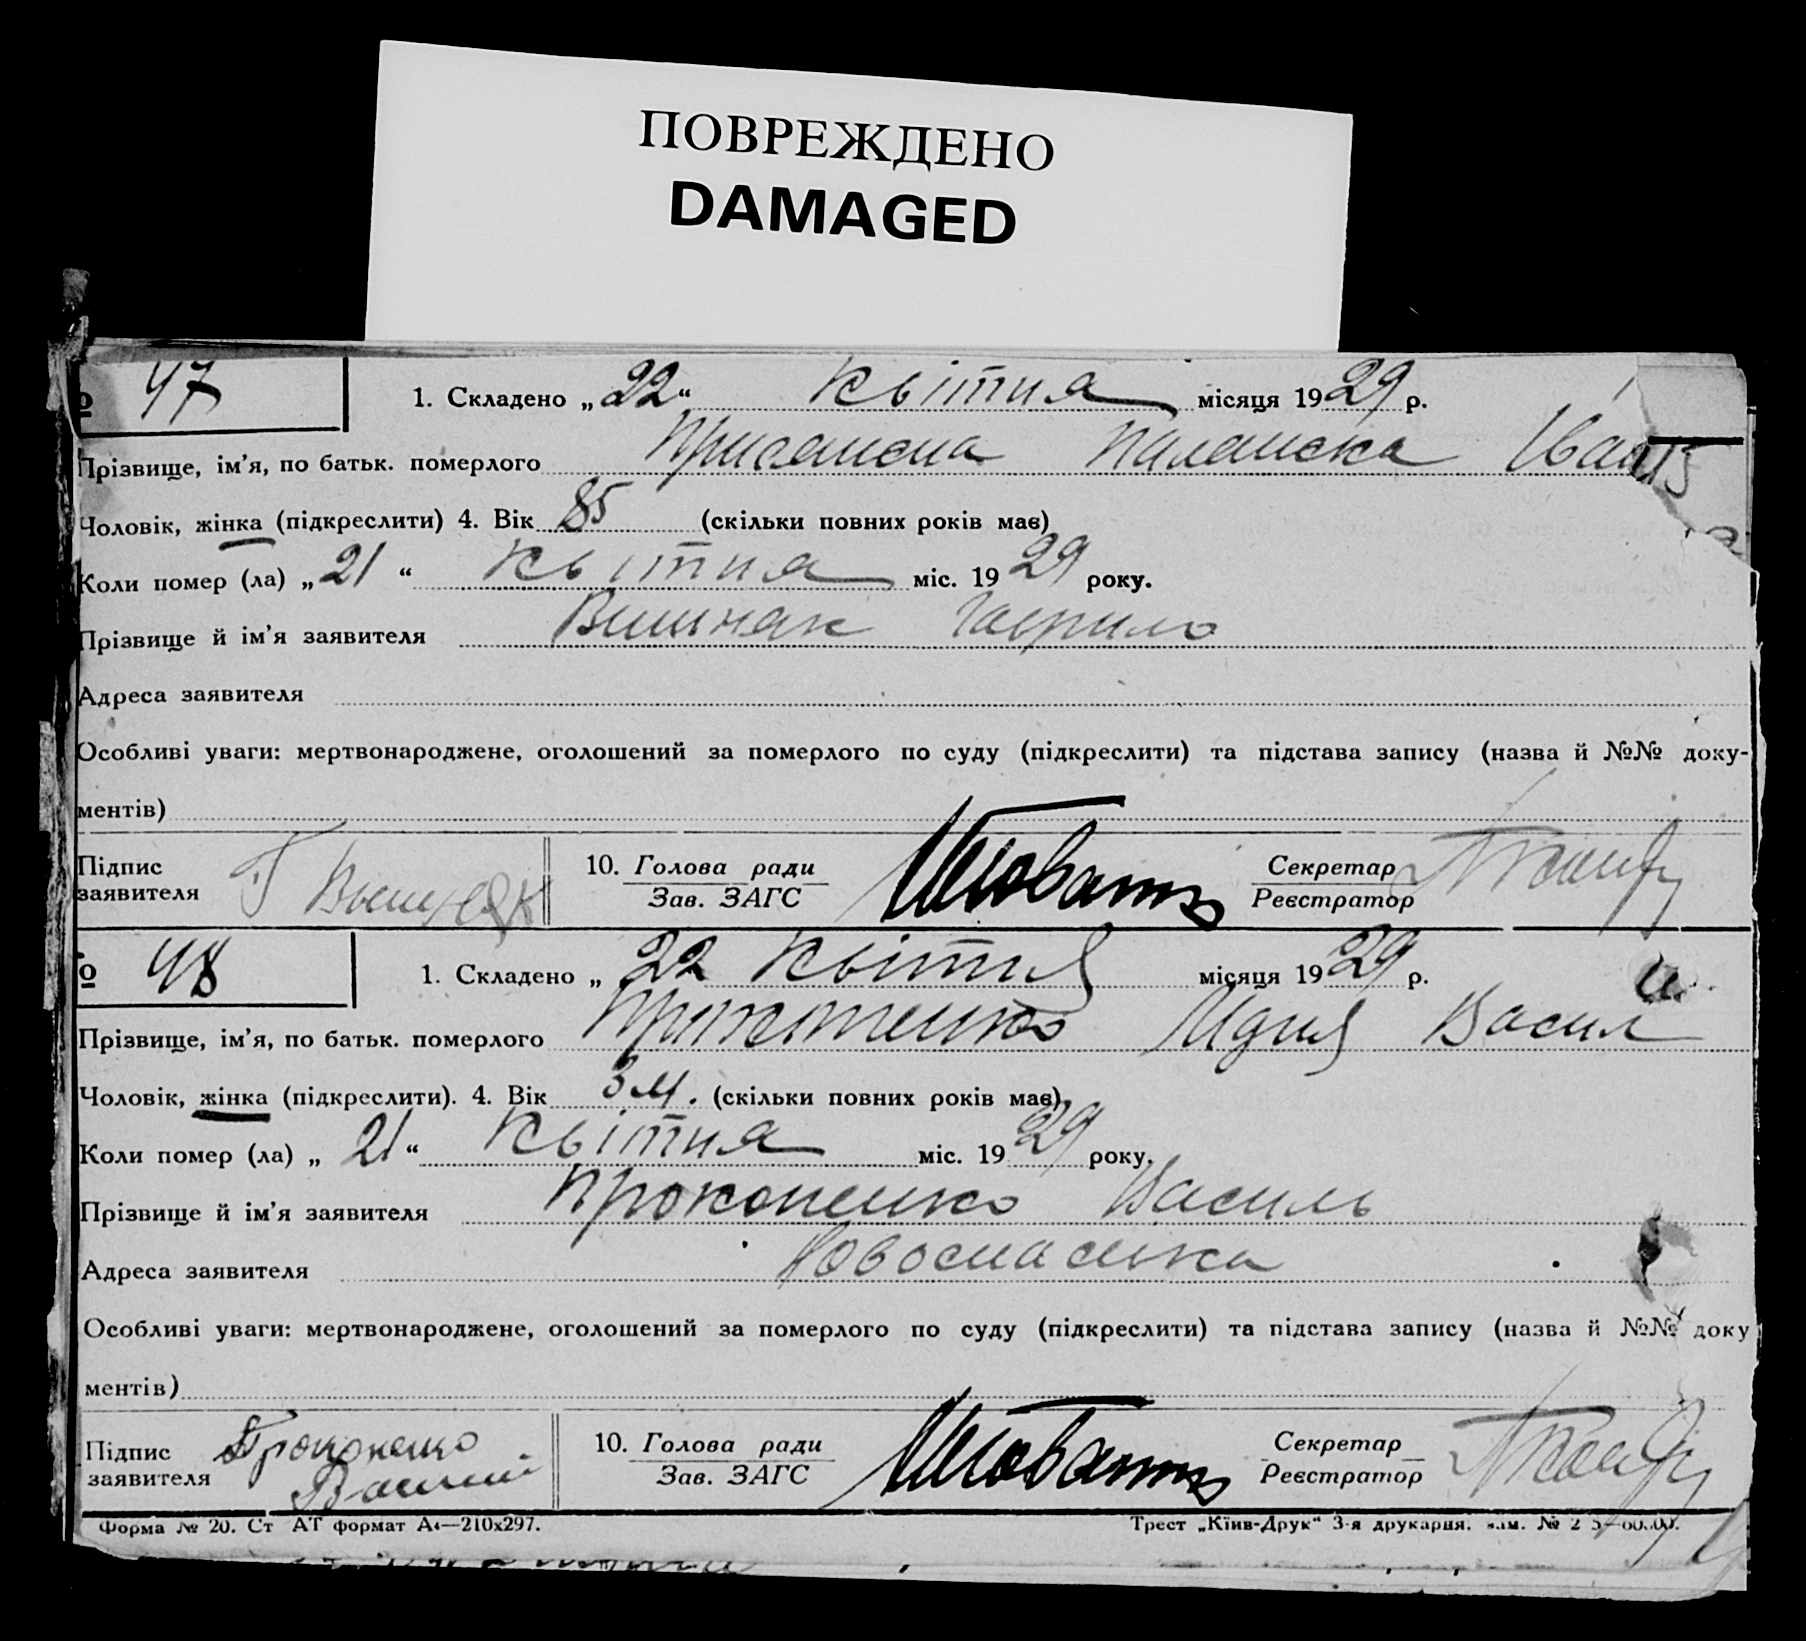 ПОВРЕЖДЕНО
DAMAGED
47
1. Складено „ 22 “ Квітня місяця 1929 р.
Прізвище, ім’я, по батьк. померлого
Чоловік, жінка (підкреслити) 4. Вік 85 (скільки повних років має)
Коли помер (ла) „ 21 “ Квітня міс. 1929 року.
Прізвище й ім’я заявителя Вишняк Гаврило
Адреса заявителя
Особливі уваги: мертвонароджене, оголошений за померлого по суду (підкреслити) та підстава запису (назва й №№ доку-
ментів)
Підпис заявителя Г Вишняк 10. Голова ради Зав. ЗАГС Секретар Реєстратор
48
1. Складено „ 22 Квітня місяця 1929 р.
Прізвище, ім’я, по батьк. померлого Васил
Чоловік, жінка (підкреслити). 4. Вік 3 м. (скільки повних років має)
Коли помер (ла) „ 21 “ Квітня міс. 1929 року.
Прізвище й ім’я заявителя Прокопенко Василь
Адреса заявителя Новоспаська
Особливі уваги: мертвонароджене, оголошений за померлого по суду (підкреслити) та підстава запису (назва й №№ доку
ментів)
Підпис заявителя Прокопенко 10. Голова ради Зав. ЗАГС Секретар Реєстратор
Форма № 20. Ст АТ формат А4—210х297. Трест „Київ-Друк“ 3-я друкарня.